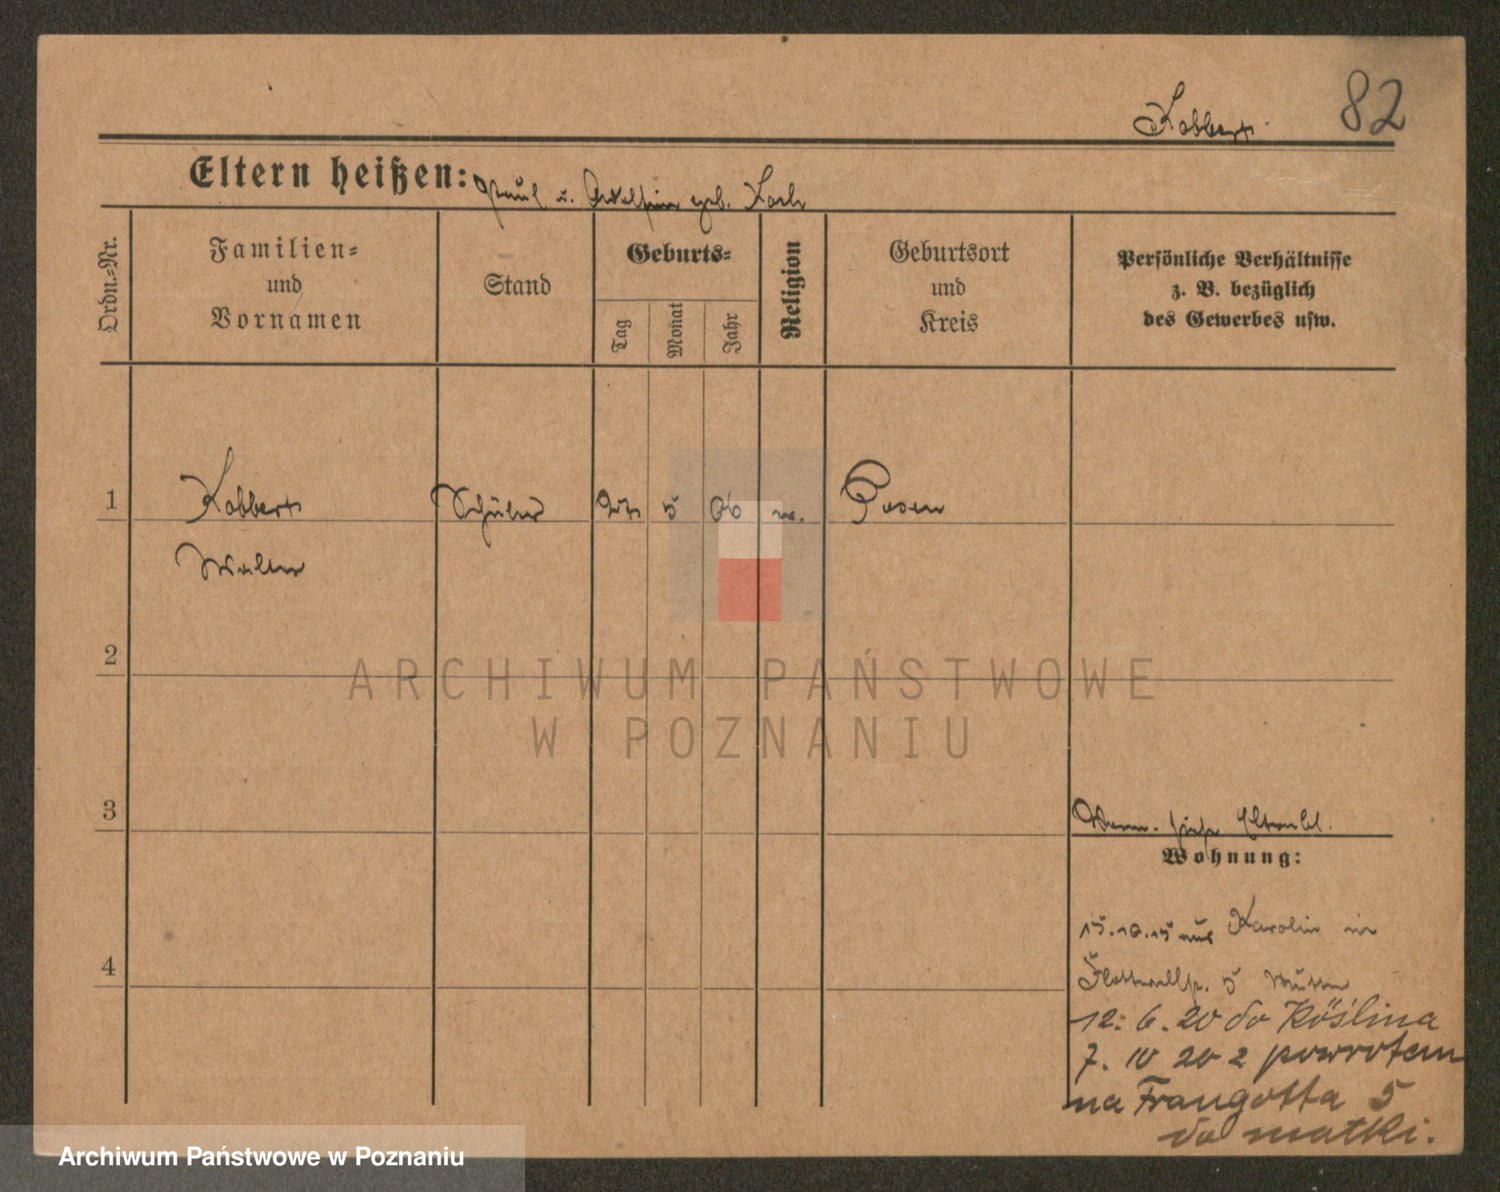 82
Kobbert
Eltern heißen: Paul u. geb. Koch
Ordn.=Nr.
Familien=
und
Vornamen
Stand
Geburts=
Tag
Monat
Jahr
Religion
Geburtsort
und
Kreis
Persönliche Verhältnisse
z. B. bezüglich
des Gewerbes usw.
1 Kobbert Schüler 5 06 Posen
Walter
2
3
Wohnung:
15.10.15 aus Karolin in
5 Mutter
4
12. 6. 20 do Köślina
7. 10 20 z powrotem
na Traugotta 5
do matki.
ARCHIWUM PAŃSTWOWE
W POZNANIU
Archiwum Państwowe w Poznaniu